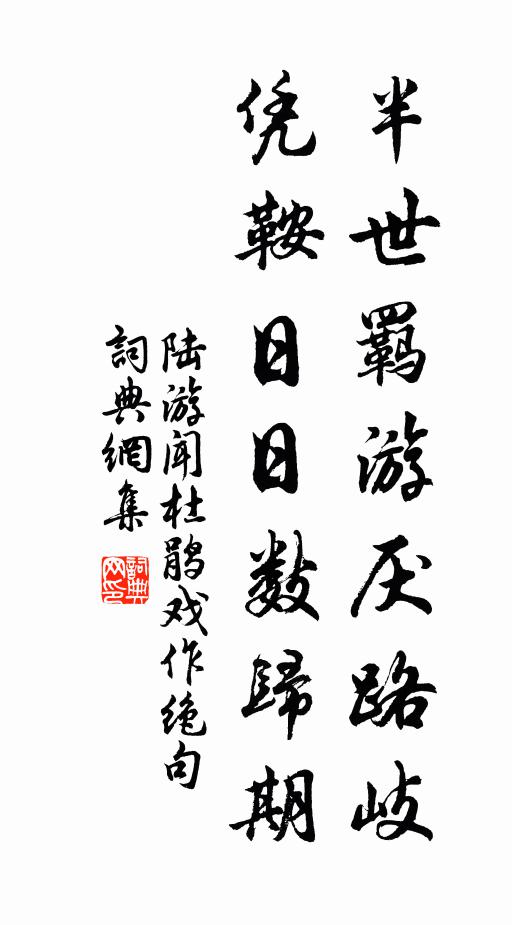 半世羁游厌路岐
凭鞍日日数歸期
陆游闻杜鹃戏作绝句
詞典網集
詞典網印